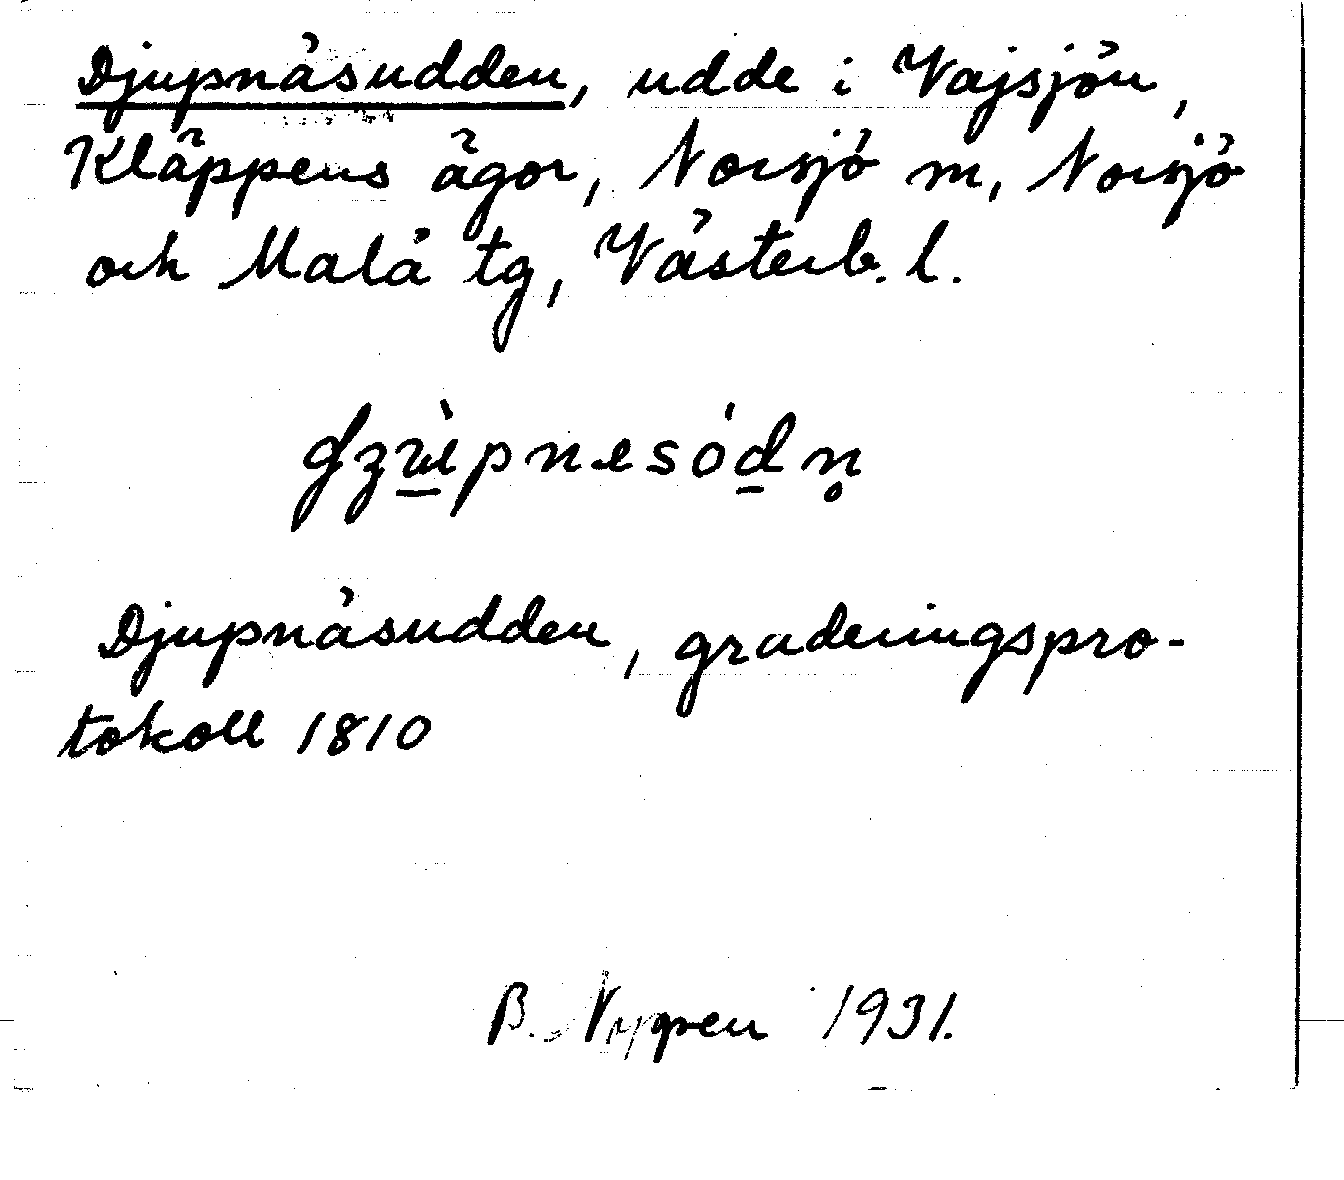 Djupnäsudden, udde i Vajsjön,
Kläppens ägor, Norsjö m, Norsjö
och Malå tg, Västerb. l.
Djupnäsudden, graderingspro-
tokoll 1810
B. Nygren 1931.